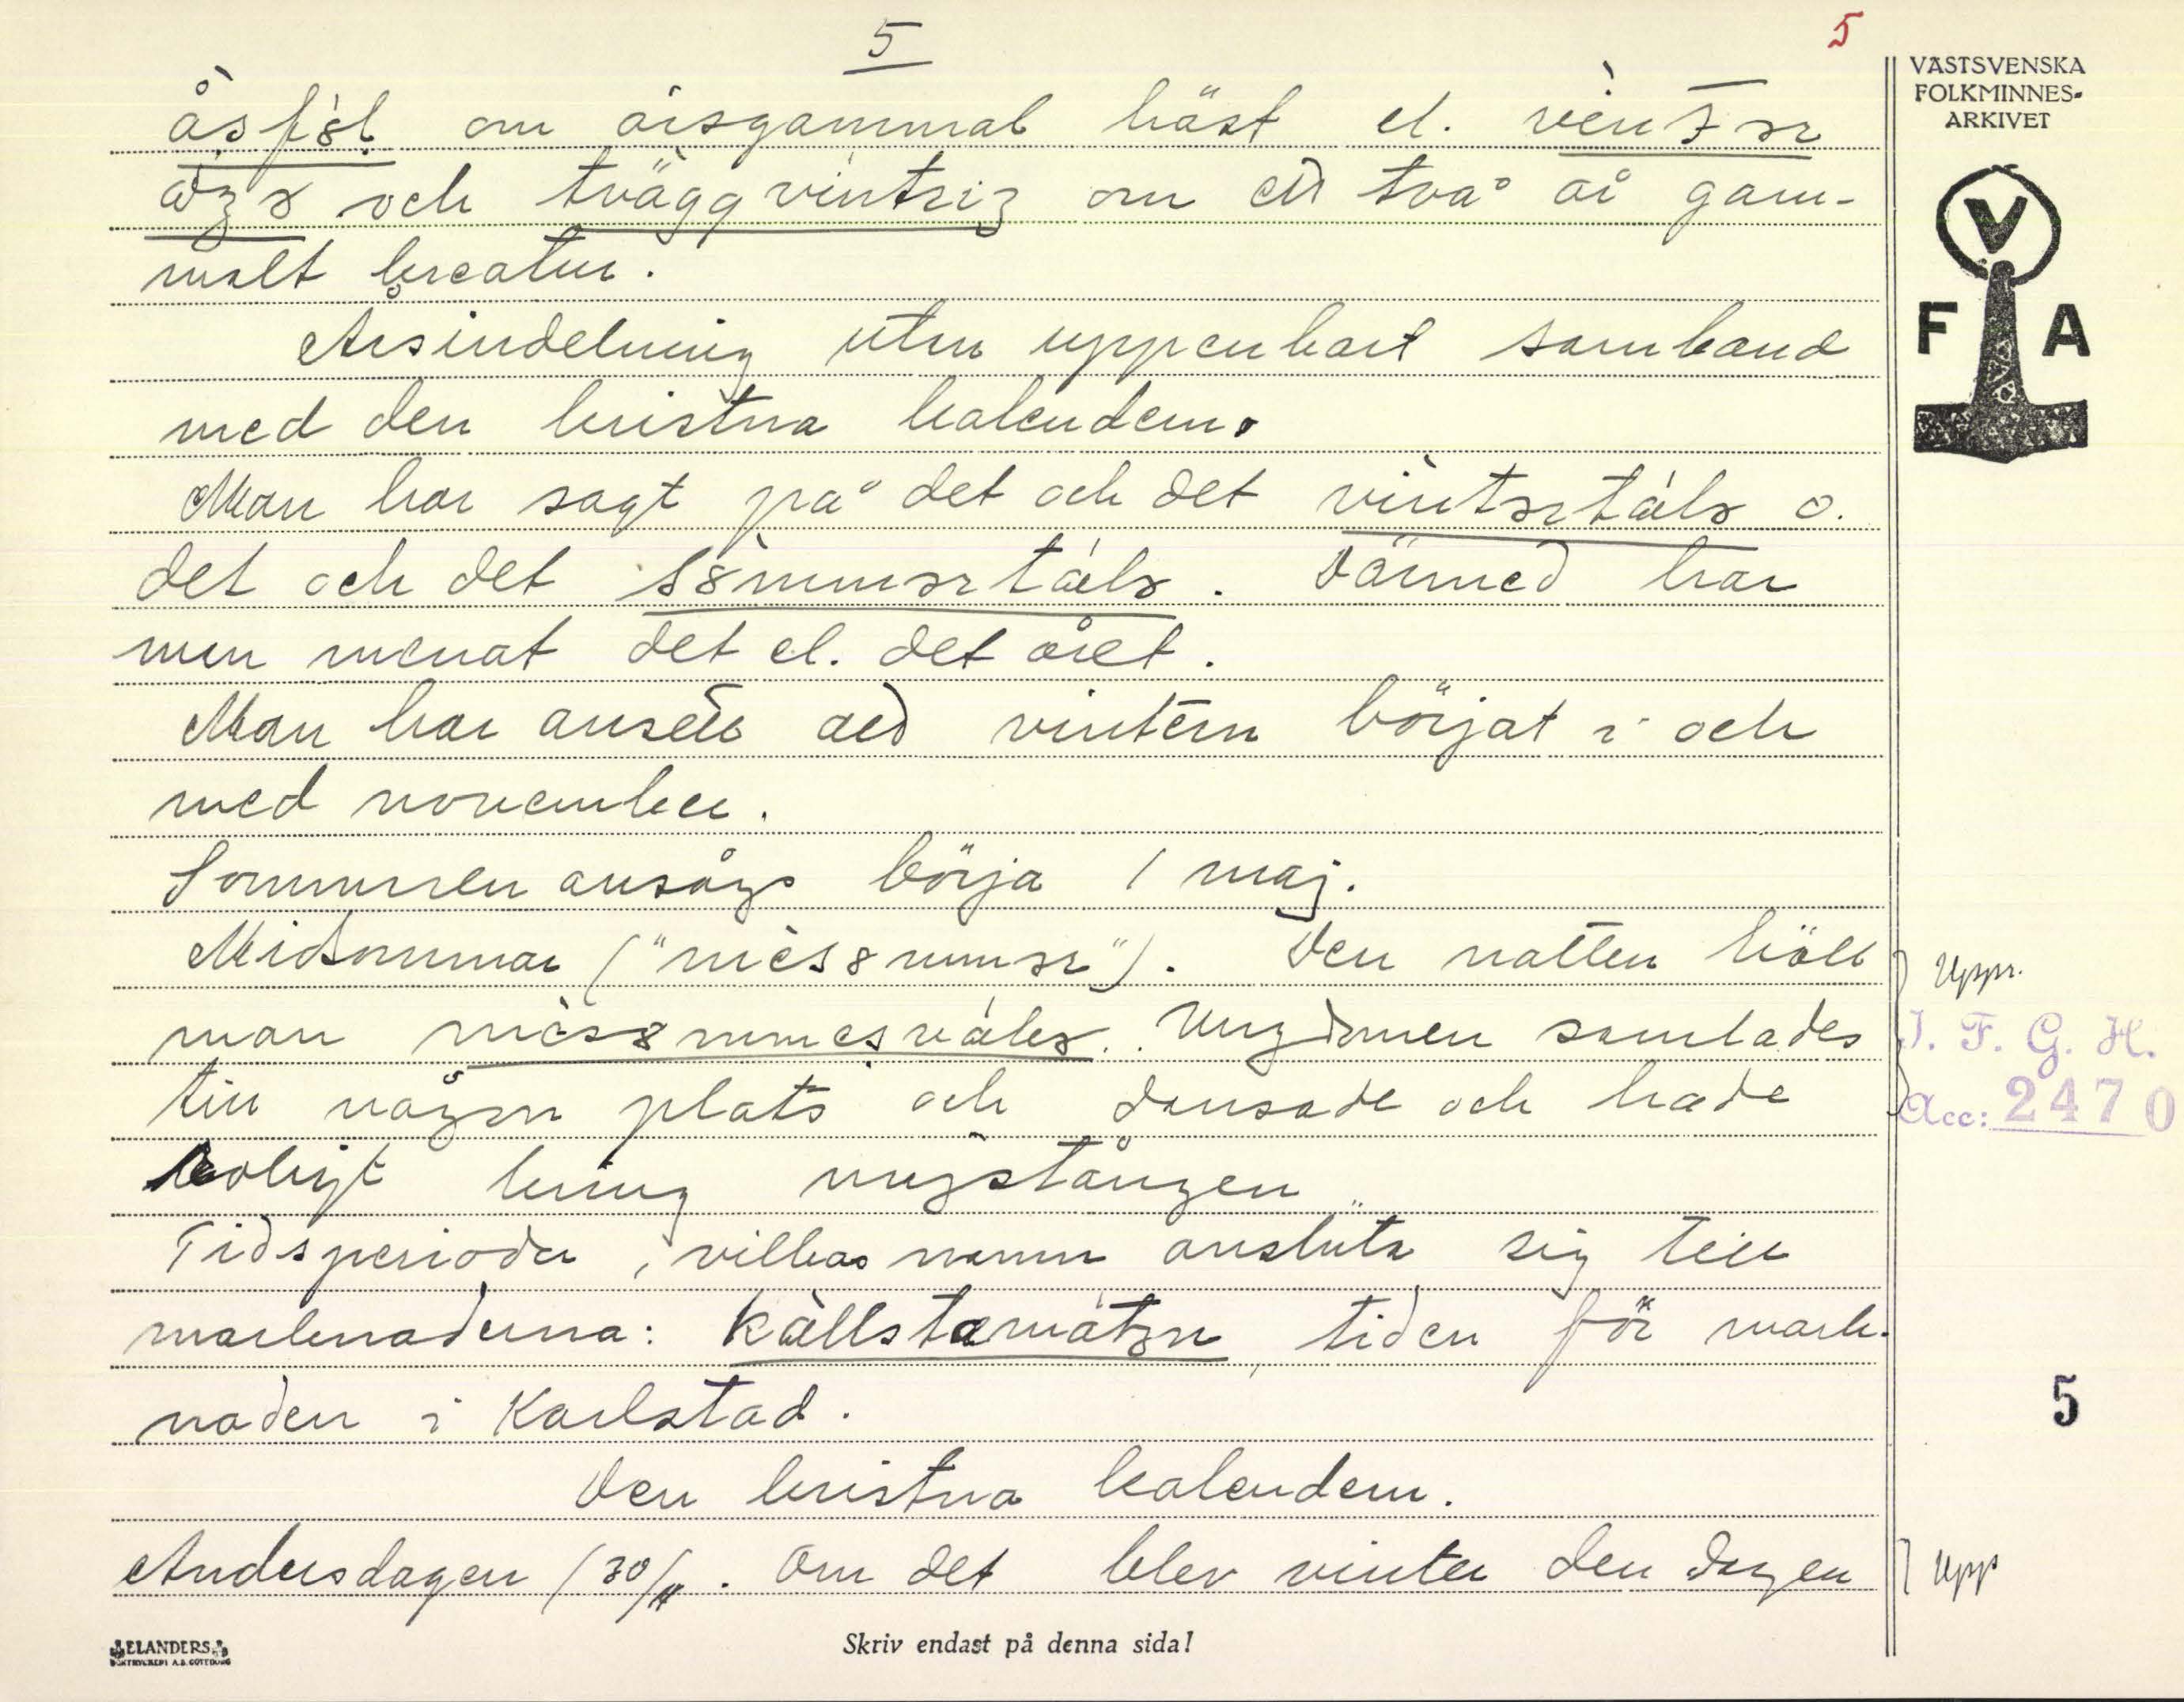 5
5
VÄSTSVENSKA
FOLKMINNES-
ARKIVET
V
F A
om årsgammal häst el.
och träggvintrig om ett två år gam-
malt kreatur.
Årsindelning utan uppenbart samband
med den kristna kalendern.
Man har sagt på det och det vintərtálə o.
det och det sȣ̀mmərtálə. Därmed har
man menat det el. det året.
Man har ansett att vintern börjat i och
med november.
Sommaren ansågs börja 1 maj.
Midsommar ("mèsȣmmər"). Den natten höll
man mèsȣmmesválər. Ungdomen samlades
till någon plats och dansade och hade
roligt kring majstången
Tidsperioder, vilkas namn ansluta sig till
marknaderna: Källstamátən, tiden för mark-
naden i Karlstad.
Den kristna kalendern.
Andersdagen (30/11. Om det blev vinter den dagen
Uppr.
I. F. G. H.
Acc: 2470
5
Upps
ELANDERS
BOKTRYCKERI A.B. GÖTEBORG
Skriv endast på denna sida!